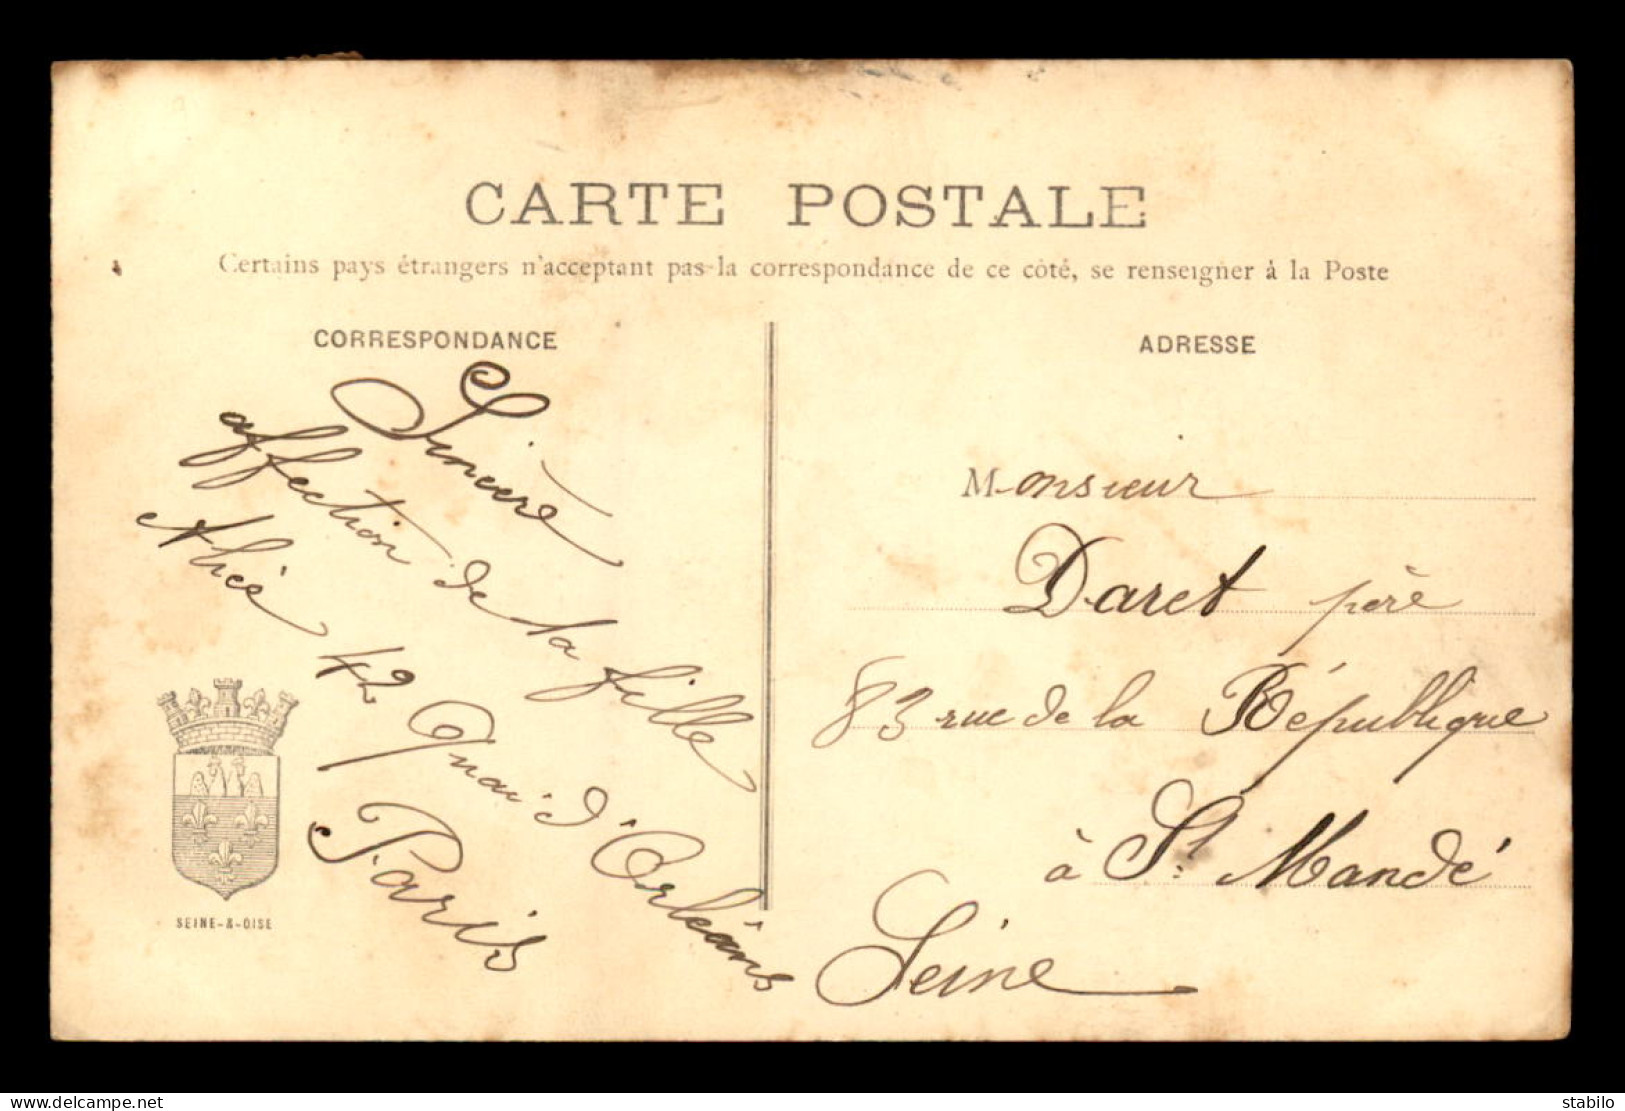 CARTE POSTALE
Certains pays étrangers n'acceptent pas la correspondance de ce côté, se renseigner à la Poste
CORRESPONDANCE
Sincère
affection de la fille
Alice
42 Quai d'Orléans
Paris
SEINE-&-OISE
ADRESSE
Monsieur
Daret père
83 rue de la République
à St. Mandé
Seine
www.delcampe.net
stabilo